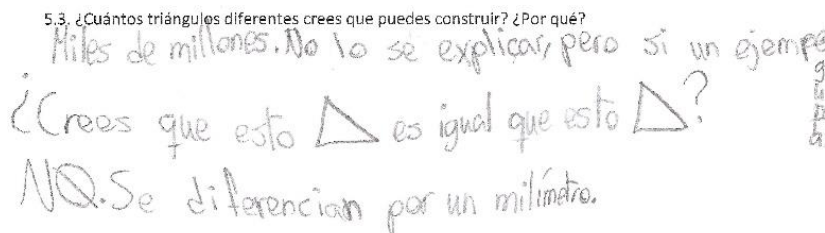 5.3. ¿Cuántos triángulos diferentes crees que puedes construir? ¿Por qué?
Miles de millones. No lo se explicar, pero si un ejemp
¿Crees que esto es igual que esto ?
NO. Se diferencian por un milímetro.